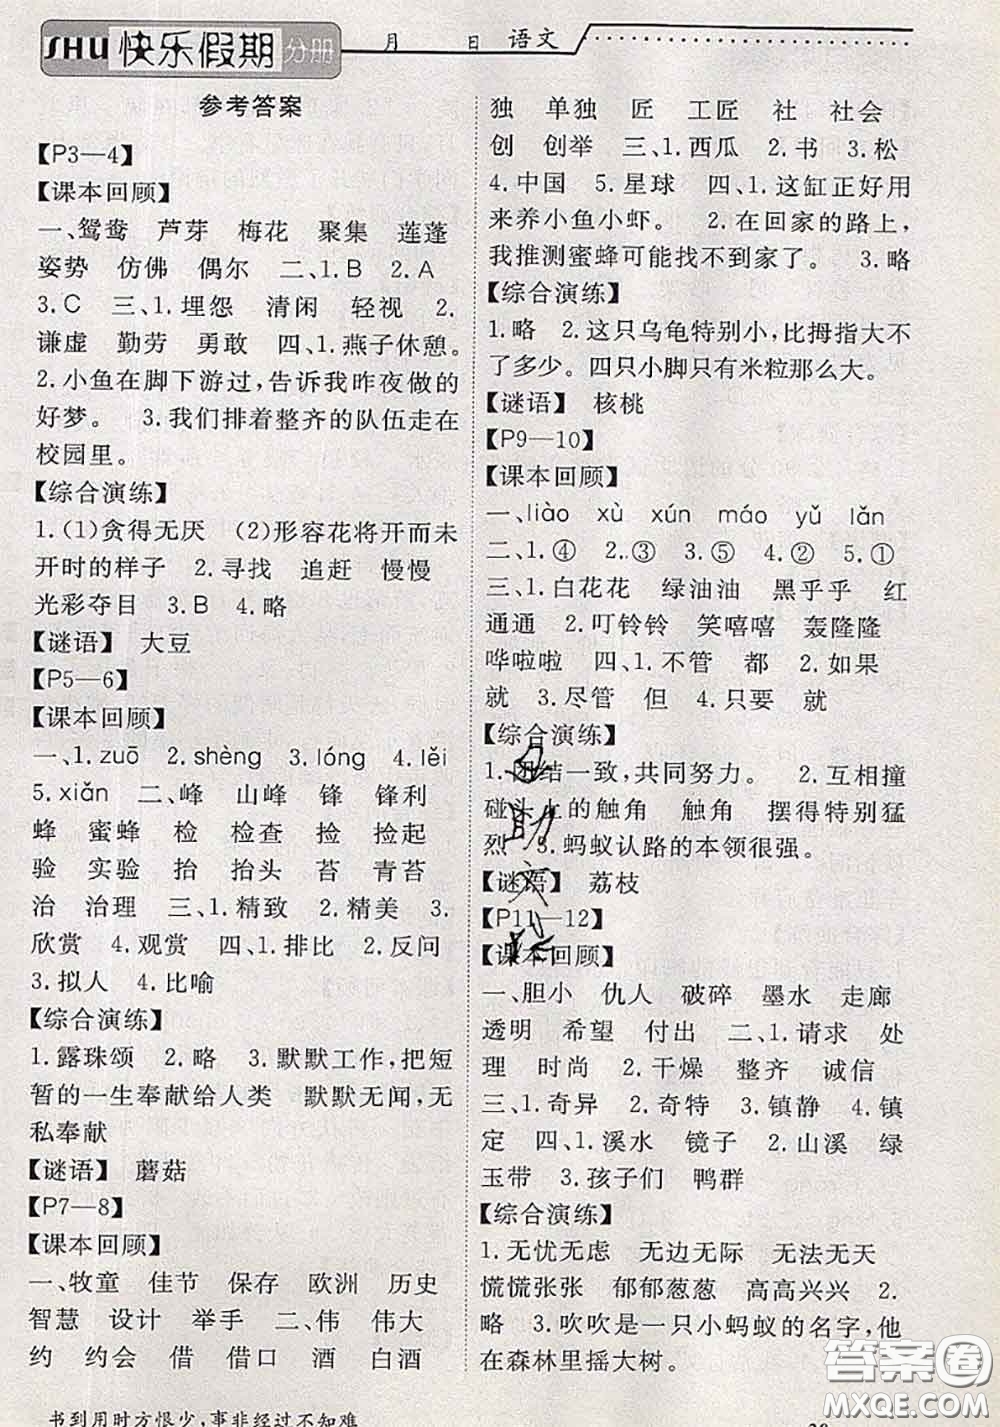 SHU 快乐假期 分册 月 日 语文
参考答案
【P3—4】
【课本回顾】
一、鸳鸯 芦芽 梅花 聚集 莲蓬
姿势 仿佛 偶尔 二、1.B 2.A
3.C 三、1.埋怨 清闲 轻视 2.
谦虚 勤劳 勇敢 四、1.燕子休憩。
2.小鱼在脚下游过,告诉我昨夜做的
好梦。 3.我们排着整齐的队伍走在
校园里。
【综合演练】
1.(1)贪得无厌 (2)形容花将开而未
开时的样子 2.寻找 追赶 慢慢
光彩夺目 3.B 4.略
【谜语】 大豆
【P5—6】
【课本回顾】
一、1.zuō 2.shèng 3.lóng 4.lěi
5.xiǎn 二、峰 山峰 锋 锋利
蜂 蜜蜂 检 检查 捡 捡起
验 实验 抬 抬头 苔 青苔
治 治理 三、1.精致 2.精美 3.
欣赏 4.观赏 四、1.排比 2.反问
3.拟人 4.比喻
【综合演练】
1.露珠颂 2.略 3.默默工作,把短
暂的一生奉献给人类 默默无闻,无
私奉献
【谜语】 蘑菇
【P7—8】
【课本回顾】
一、牧童 佳节 保存 欧洲 历史
智慧 设计 举手 二、伟 伟大
约 约会 借 借口 酒 白酒
独 单独 匠 工匠 社 社会
创 创举 三、1.西瓜 2.书 3.松
4.中国 5.星球 四、1.这缸正好用
来养小鱼小虾。 2.在回家的路上,
我推测蜜蜂可能找不到家了。 3.略
【综合演练】
1.略 2.这只乌龟特别小,比拇指大不
了多少。四只小脚只有米粒那么大。
【谜语】 核桃
【P9—10】
【课本回顾】
一、liào xù xún máo yǔ lǎn
二、1.④ 2.③ 3.⑤ 4.② 5.①
三、1.白花花 绿油油 黑乎乎 红
通通 2.叮铃铃 笑嘻嘻 轰隆隆
哗啦啦 四、1.不管 都 2.如果
就 3.尽管 但 4.只要 就
【综合演练】
1.团结一致,共同努力。 2.互相撞
碰头上的触角 触角 摆得特别猛
烈 3.蚂蚁认路的本领很强。
【谜语】 荔枝
【P11—12】
【课本回顾】
一、胆小 仇人 破碎 墨水 走廊
透明 希望 付出 二、1.请求 处
理 时尚 2.干燥 整齐 诚信
三、1.奇异 2.奇特 3.镇静 4.镇
定 四、1.溪水 镜子 2.山溪 绿
玉带 3.孩子们 鸭群
【综合演练】
1.无忧无虑 无边无际 无法无天
慌慌张张 郁郁葱葱 高高兴兴 2.
略 3.吹吹是一只小蚂蚁的名字,他
在森林里摇大树。
书到用时方恨少,事非经过不知难
答案圈
MXQE.COM